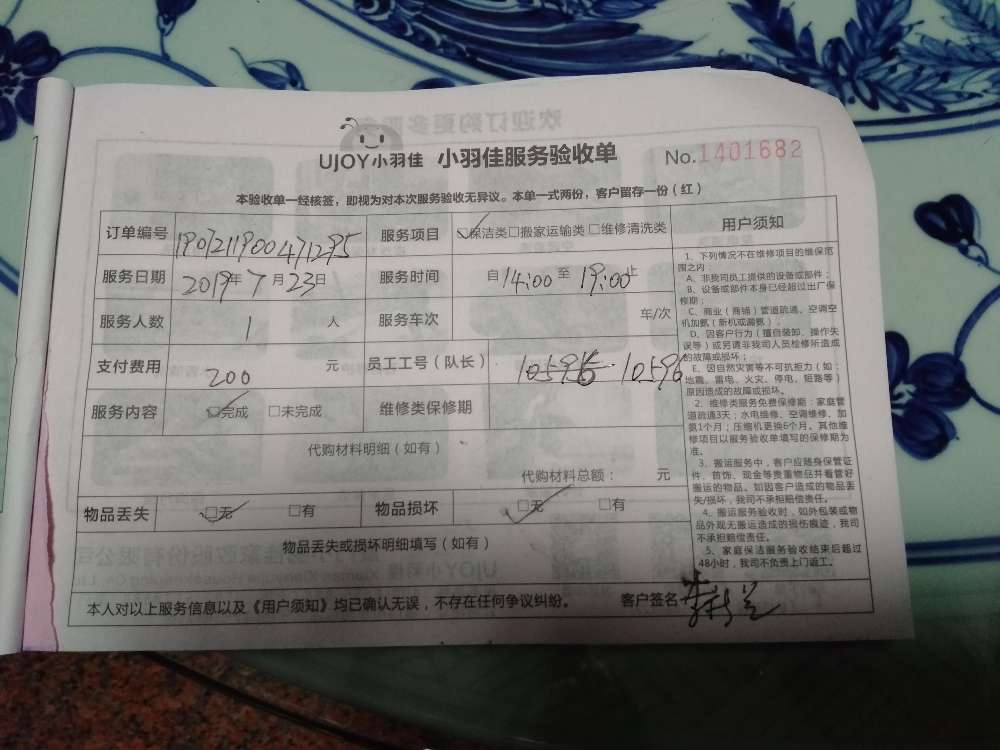 UJOY小羽佳 小羽佳服务验收单 No.1401682
本验收单一经核签，即视为对本次服务验收无异议。本单一式两份，客户留存一份（红）
订单编号 1907211900471295 服务项目 ☑保洁类□搬家运输类□维修清洗类
服务日期 2019年7月23日 服务时间 自14:00至19:00止
服务人数 1 人 服务车次 车/次
支付费用 200 元 员工工号（队长） 10596
服务内容 ☑完成 □未完成 维修类保修期
代购材料明细（如有）
代购材料总额： 元
物品丢失 ☑无 □有 物品损坏 ☑无 □有
物品丢失或损坏明细填写（如有）
本人对以上服务信息以及《用户须知》均已确认无误，不存在任何争议纠纷。 客户签名
用户须知
1、下列情况不在维修项目的维保范
围之内：
A、非我司员工提供的设备或部件；
B、设备或部件本身已经超过出厂保
修期；
C、商业（商铺）管道疏通、空调空
机加氨（新机或漏氨）；
D、因客户行为（擅自装卸、操作失
误等）或另请非我司人员检修所造成
的故障或损坏；
E、因自然灾害等不可抗拒力（如：
地震、雷电、火灾、停电、短路等）
原因造成的故障或损坏。
2、维修类服务免费保修期：家庭管
道疏通3天；水电维修、空调维修、加
氨1个月；压缩机更换6个月。其他维
修项目以服务验收单填写的保修期为
准。
3、搬运服务中，客户应随身保管证
件、首饰、现金等贵重物品并看管好
搬运的物品。如因客户造成的物品丢
失/损坏，我司不承担赔偿责任。
4、搬运服务验收时，如外包装或物
品外观无搬运造成的损伤痕迹，我司
不承担赔偿责任。
5、家庭保洁服务验收结束后超过
48小时，我司不负责上门返工。